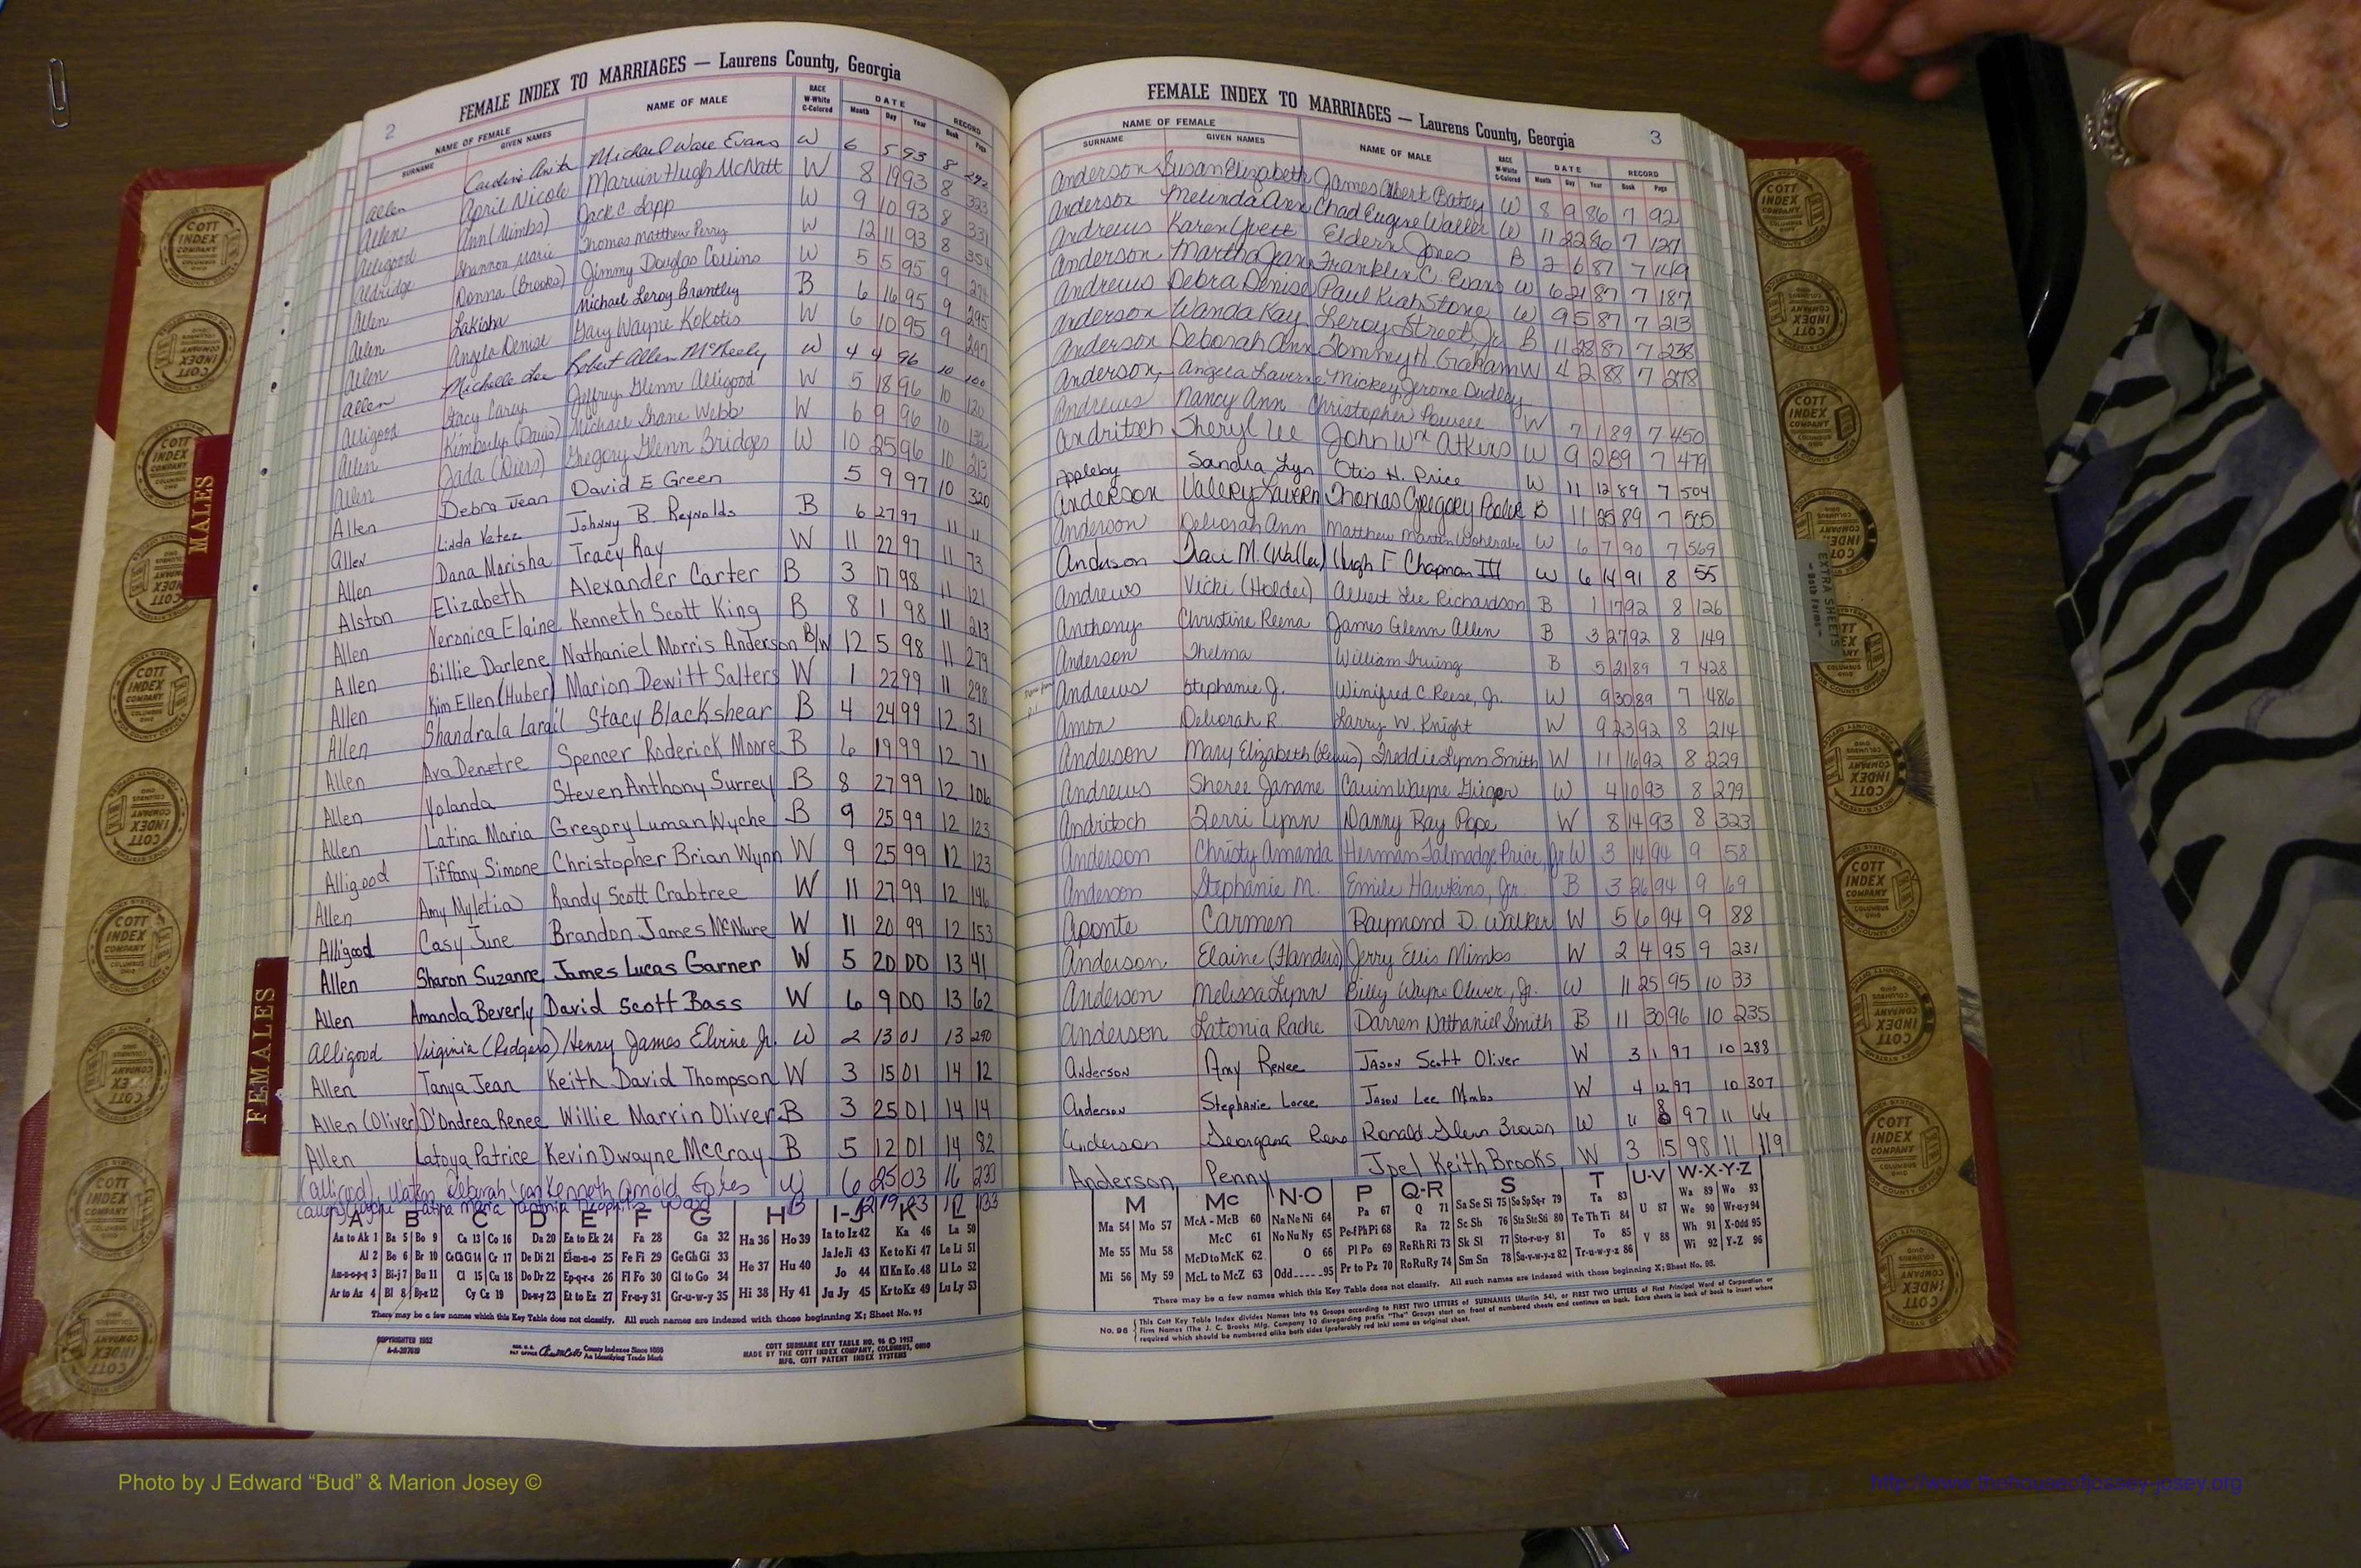 2
FEMALE INDEX TO MARRIAGES — Laurens County, Georgia
NAME OF FEMALE
SURNAME GIVEN NAMES NAME OF MALE RACE W-White C-Colored DATE Month Day Year RECORD Book Page
Allen Caroline Anita Michael Ware Evans W 6 5 93 8 292
Allen April Nicole Marvin Hugh McNatt W 8 19 93 8 323
Alligood Ann (Mimbs) Jack C Lapp W 9 10 93 8 331
Aldridge Shannon Marie Thomas Matthew Perry W 12 11 93 8 354
Allen Donna (Brooks) Jimmy Douglas Collins W 5 5 95 9 274
Allen Lakisha Michael Leroy Brantley B 6 16 95 9 295
Allen Angela Denise Gary Wayne Kokotis W 6 10 95 9 297
Allen Michelle Lee Robert Allen McNeely W 4 4 96 10 100
Alligood Stacy Carey Jeffrey Glenn Alligood W 5 18 96 10 120
Allen Kimberly (Davis) Michael Shane Webb W 6 9 96 10
Allen Jada (Diers) Gregory Glenn Bridges W 10 25 96 10 213
Allen Debra Jean David E Green 5 9 97 10 320
Allen Linda Yates Johnny B. Reynolds B 6 27 97 11 11
Allen Dana Marisha Tracy Ray W 11 22 97 11 73
Alston Elizabeth Alexander Carter B 3 17 98 11 121
Allen Veronica Elaine Kenneth Scott King B 8 1 98 11 213
Allen Billie Darlene Nathaniel Morris Anderson B/W 12 5 98 11 279
Allen Kim Ellen (Huber) Marion Dewitt Salters W 1 22 99 11 298
Allen Shandrala Larail Stacy Blackshear B 4 24 99 12 31
Allen Ava Denetre Spencer Roderick Moore B 6 19 99 12 71
Allen Yolanda Steven Anthony Surrey B 8 27 99 12 106
Allen Latina Maria Gregory Luman Wyche B 9 25 99 12 123
Alligood Tiffany Simone Christopher Brian Wynn W 9 25 99 12 123
Allen Amy Myletia Randy Scott Crabtree W 11 27 99 12 146
Alligood Casy June Brandon James McNure W 11 20 99 12 153
Allen Sharon Suzanne James Lucas Garner W 5 20 00 13 41
Allen Amanda Beverly David Scott Bass W 6 9 00 13 62
Alligood Virginia (Rodgers) Henry James Elvine Jr. W 2 13 01 13 290
Allen Tanya Jean Keith David Thompson W 3 15 01 14 12
Allen (Oliver) D'Ondrea Renee Willie Marvin Oliver B 3 25 01 14 14
Allen Latoya Patrice Kevin Dwayne McCray B 5 12 01 14 82
(Alligood) Deborah Jean Kenneth Arnold W 6 25 03 16 233
(Allen) Wyche Latina Maria B 12 19 03 17 133
A B C D E F G H I-J K L
Aa to Ak 1 Ba 5 Bo 9 Ca 13 Co 16 Da 20 Ea to Ek 24 Fa 28 Ga 32 Ha 36 Ho 39 Ia to Iz 42 Ka 46 La 50
Al 2 Be 6 Br 10 Ce Ch Ci 14 Cr 17 De Di 21 El-m-n-o 25 Fe Fi 29 Ge Gh Gi 33 He 37 Hu 40 Ja Je Ji 43 Ke to Ki 47 Le Li 51
Am-n-o-p-q 3 Bi-j 7 Bu 11 Cl 15 Cu 18 Do Dr 22 Ep-q-r-s 26 Fl Fo 30 Gl to Go 34 Jo 44 Kl Kn Ko 48 Ll Lo 52
Ar to Az 4 Bl 8 By-z 12 Cy Cz 19 Du-w-y 23 Et to Ez 27 Fr-u-y 31 Gr-u-w-y 35 Hi 38 Hy 41 Ju Jy 45 Kr to Kz 49 Lu Ly 53
There may be a few names which this Key Table does not classify. All such names are indexed with those beginning X; Sheet No. 95
COPYRIGHTED 1952
County Indexes Since 1888
An Identifying Trade Mark
COTT SURNAME KEY TABLE NO. 96 © 1952
MADE BY THE COTT INDEX COMPANY, COLUMBUS, OHIO
MFG. COTT PATENT INDEX SYSTEMS
FEMALE INDEX TO MARRIAGES — Laurens County, Georgia
3
NAME OF FEMALE
SURNAME GIVEN NAMES NAME OF MALE RACE W-White C-Colored DATE Month Day Year RECORD Book Page
Anderson Susan Elizabeth James Albert Batey W 8 9 86 7 92
Anderson Melinda Ann Chad Eugene Waller W 11 22 86 7 127
Andrews Karen Yvett Eldern Jones B 2 6 87 7 149
Anderson Martha Jan Franklin C. Evans W 6 21 87 7 187
Andrews Debra Denise Paul Kiah Stone W 9 5 87 7 213
Anderson Wanda Kay Leroy Street, Jr B 11 28 87 7 238
Anderson Deborah Ann Tommy H. Graham W 4 2 88 7 278
Anderson, Angela Laverne Mickey Jerome Dudley
Andrews Nancy Ann Christopher Powell W 7 1 89 7 450
Andritsch Sheryl Lee John Wm Atkins W 9 2 89 7 479
Appleby Sandra Lyn Otis H. Price W 11 12 89 7 504
Anderson Valery Lavern Thomas Gregory Poole B 11 25 89 7 505
Anderson Deborah Ann Matthew Martin W 6 7 90 7 569
Anderson Traci M. (Waller) Hugh F Chapman III W 6 14 91 8 55
Andrews Vicki (Holder) Albert Lee Richardson B 1 17 92 8 126
Anthony Christine Reena James Glenn Allen B 3 27 92 8 149
Anderson Thelma William Irving B 5 21 89 7 428
Andrews Stephanie J. Winifred C. Reese, Jr. W 9 30 89 7 486
Amon Deborah R. Larry W. Knight W 9 23 92 8 214
Anderson Mary Elizabeth (Lewis) Freddie Lynn Smith W 11 16 92 8 229
Andrews Sheree Janane Cauin Wayne Ginger W 4 10 93 8 279
Andritsch Terri Lynn Danny Ray Pope W 8 14 93 8 323
Anderson Christy Amanda Herman Talmadge Price, Jr W 3 14 94 9 58
Anderson Stephanie M. Emile Hawkins, Jr. B 3 26 94 9 69
Aponte Carmen Raymond D. Walker W 5 6 94 9 88
Anderson Elaine (Flanders) Jerry Ellis Mimbs W 2 4 95 9 231
Anderson Melissa Lynn Billy Wayne Oliver, Jr. W 11 25 95 10 33
Anderson Latonia Rache Darren Nathaniel Smith B 11 30 96 10 235
Anderson Amy Renee Jason Scott Oliver W 3 1 97 10 288
Anderson Stephanie Loree Jason Lee Mimbs W 4 12 97 10 307
Anderson Georgana Rena Ronald Glenn Brown W 11 8 97 11 66
Anderson Penny Joel Keith Brooks W 3 15 98 11 119
M Mc N-O P Q-R S T U-V W-X-Y-Z
Ma 54 Mo 57 McA - McB 60 Na Ne Ni 64 Pa 67 Q 71 Sa Se Si 75 So Sp Sq-r 79 Ta 83 U 87 Wa 89 Wo 93
Me 55 Mu 58 McC 61 No Nu Ny 65 Pe-f Ph Pi 68 Ra 72 Sc Sh 76 Sta Ste Sti 80 Te Th Ti 84 We 90 Wr-u-y 94
McD to McK 62 O 66 Pl Po 69 Re Rh Ri 73 Sk Sl 77 Sto-r-u-y 81 To 85 V 88 Wh 91 X-Odd 95
Mi 56 My 59 McL to McZ 63 Odd-----95 Pr to Pz 70 Ro Ru Ry 74 Sm Sn 78 Su-v-w-y-z 82 Tr-u-w-y-z 86 Wi 92 Y-Z 96
There may be a few names which this Key Table does not classify. All such names are indexed with those beginning X; Sheet No. 95.
No. 96 This Cott Key Table Index divides Names into 96 Groups according to FIRST TWO LETTERS of SURNAMES (Martin 54), or FIRST TWO LETTERS of First Principal Word of Corporation or
Firm Names (The J. C. Brooks Mfg. Company 10 disregarding prefix "The") Groups start on front of numbered sheets and continue on back. Extra sheets in back of book to insert where
required which should be numbered alike both sides (preferably red ink) same as original sheet.
MALES
FEMALES
EXTRA SHEETS
COTT INDEX COMPANY
Photo by J Edward “Bud” & Marion Josey ©
http://www.thehouseofjossey-josey.org